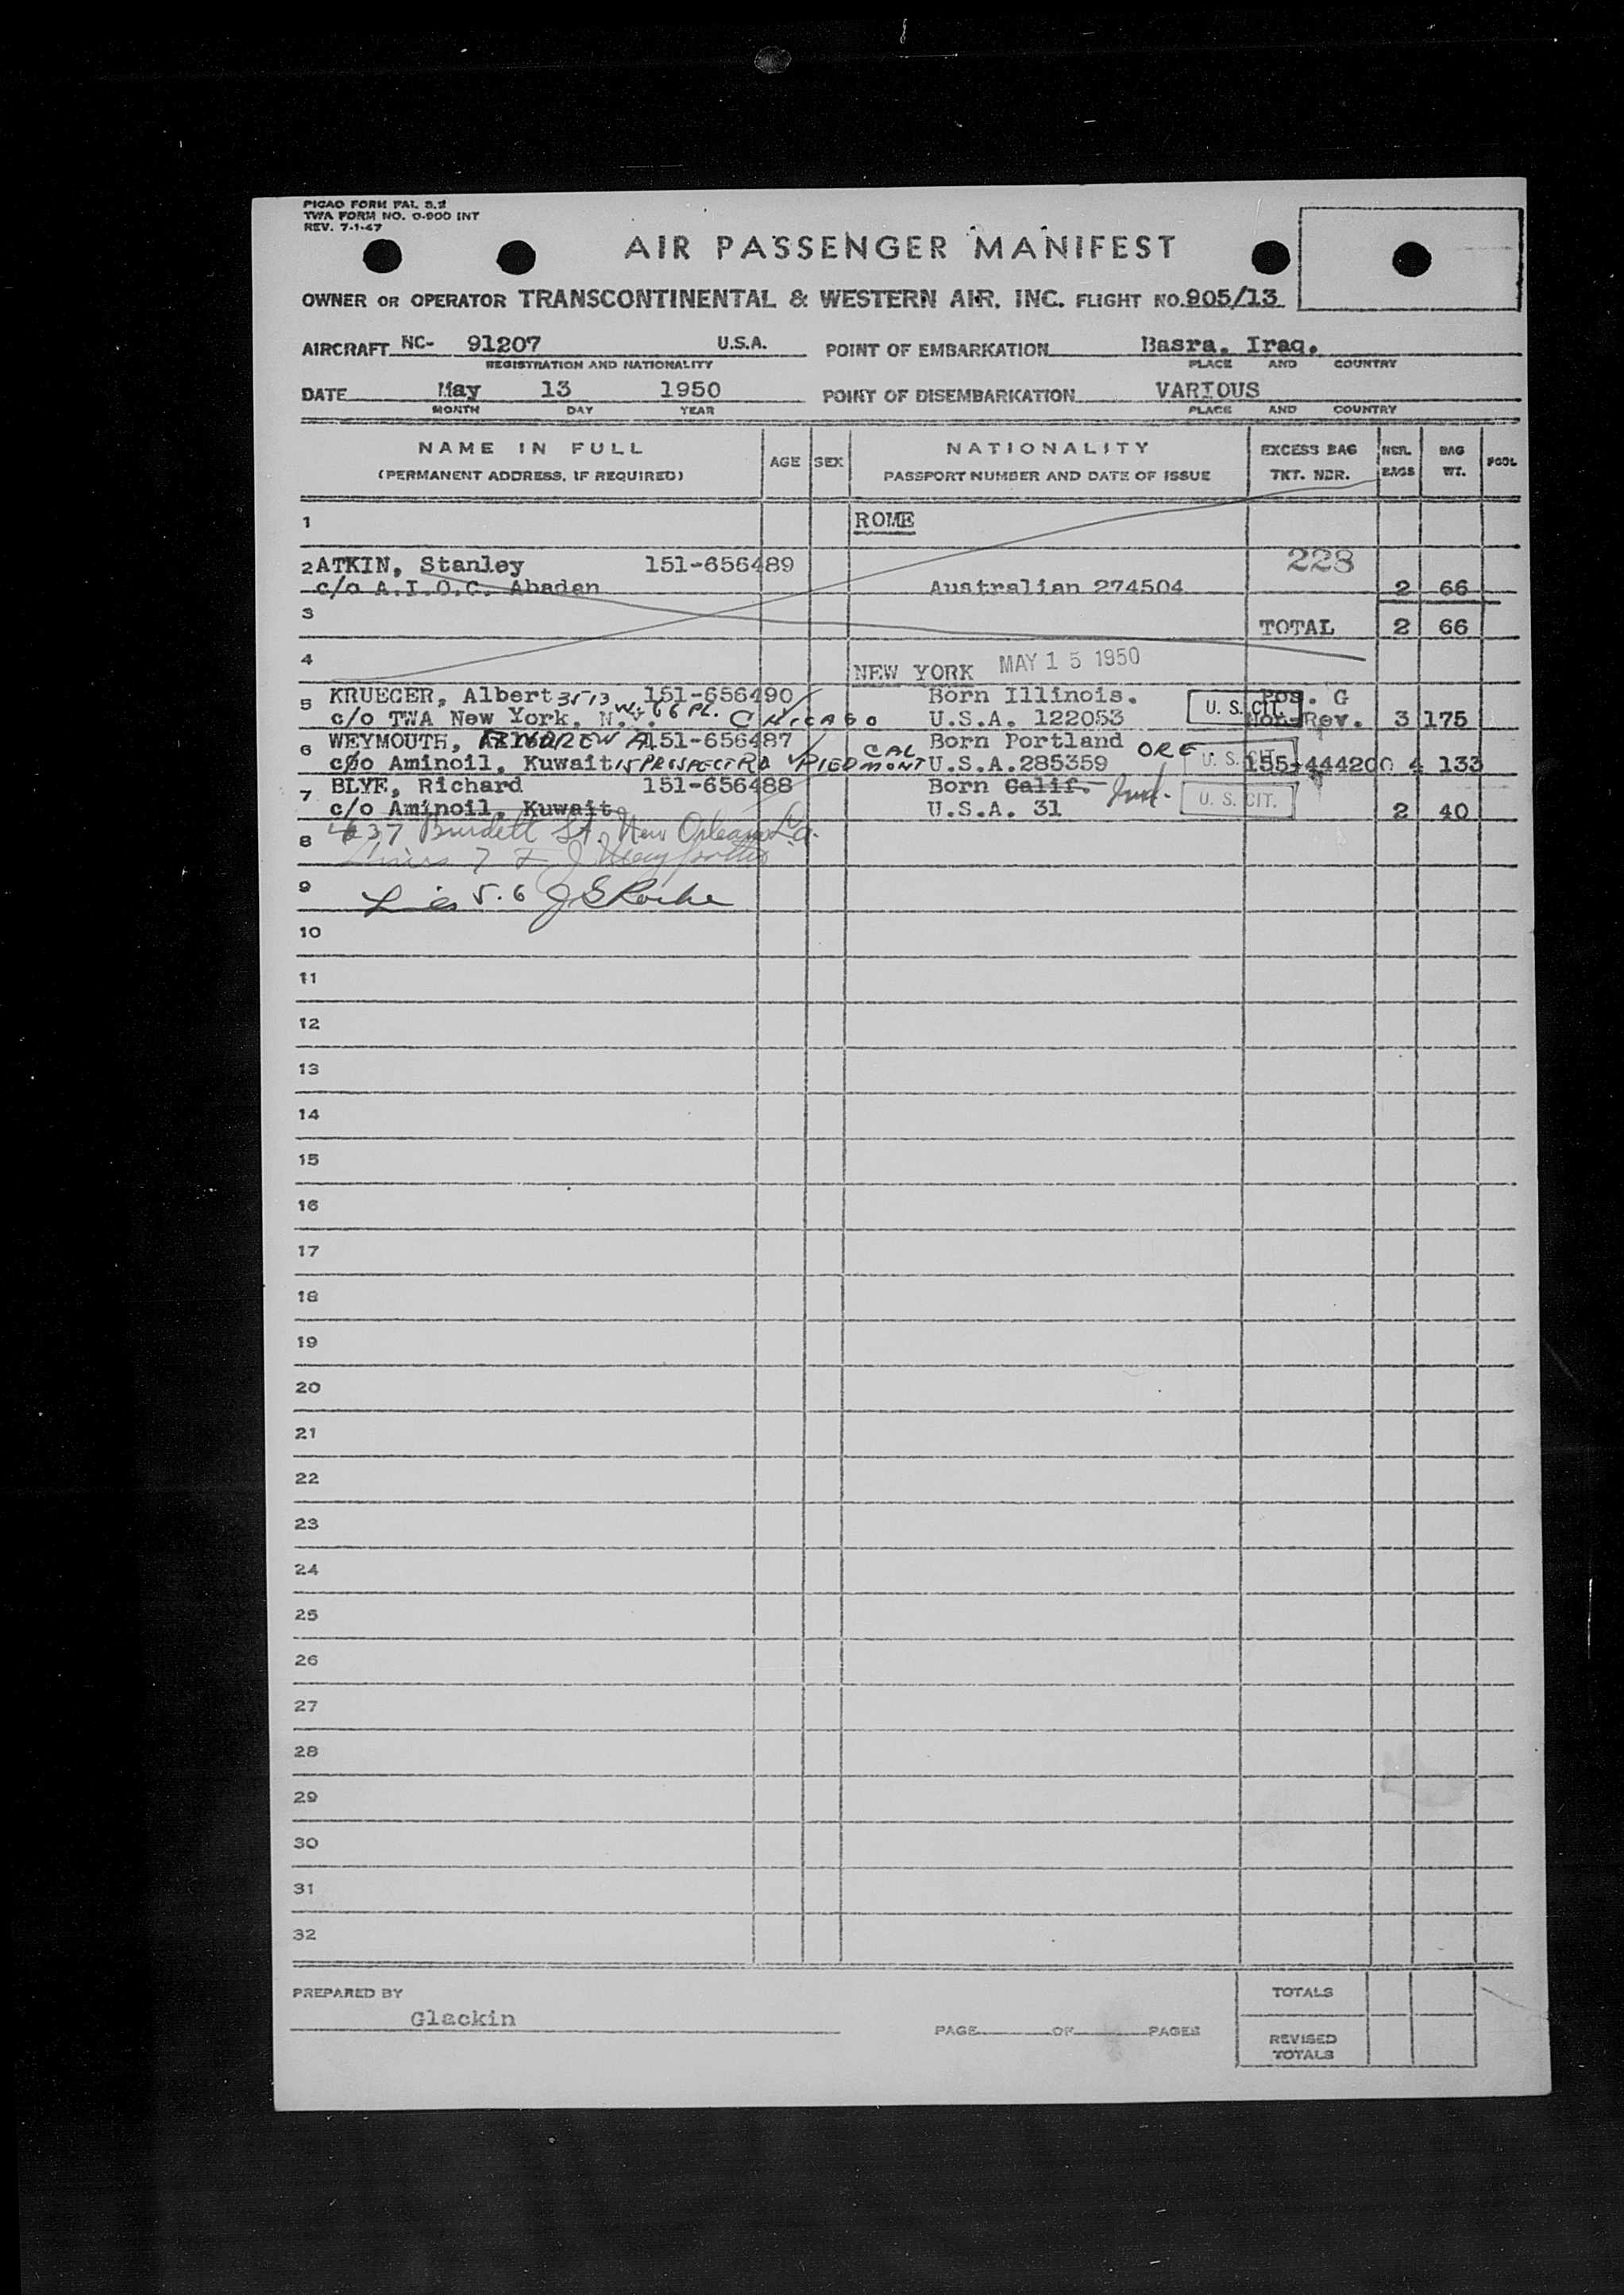 PICAO FORM PAL 2.2
TWA FORM NO. O-900 INT
REV. 7-1-47
AIR PASSENGER MANIFEST
OWNER OR OPERATOR TRANSCONTINENTAL & WESTERN AIR, INC. FLIGHT NO. 905/13
AIRCRAFT NC- 91207 U.S.A. POINT OF EMBARKATION Basra, Iraq.
REGISTRATION AND NATIONALITY PLACE AND COUNTRY
DATE May 13 1950 POINT OF DISEMBARKATION VARIOUS
MONTH DAY YEAR PLACE AND COUNTRY
NAME IN FULL AGE SEX NATIONALITY EXCESS BAG NBR. BAG POOL
(PERMANENT ADDRESS, IF REQUIRED) PASSPORT NUMBER AND DATE OF ISSUE TKT. NBR. BAGS WT.
1 ROME
2 ATKIN, Stanley 151-656489 228
c/o A.I.O.C. Abadan Australian 274504 2 66
3 TOTAL 2 66
4 NEW YORK MAY 15 1950
5 KRUEGER, Albert 3513 W. 66 PL. 151-656490 Born Illinois. U. S. CIT. Pos. G
c/o TWA New York, N.Y. CHICAGO U.S.A. 122053 Non-Rev. 3 175
6 WEYMOUTH, ANDREW A 151-656487 Born Portland ORE
c/o Aminoil, Kuwait 15 PROSPECT RD PIEDMONT CAL U.S.A.285359 U. S. CIT. 155-444200 4 133
7 BLYE, Richard 151-656488 Born Calif. Ind.
c/o Aminoil, Kuwait U.S.A. 31 U. S. CIT. 2 40
8 Burdett St. New Orleans La.
9 5.6 J S Roche
10
11
12
13
14
15
16
17
18
19
20
21
22
23
24
25
26
27
28
29
30
31
32
PREPARED BY TOTALS
Glackin
PAGE OF PAGES REVISED
TOTALS